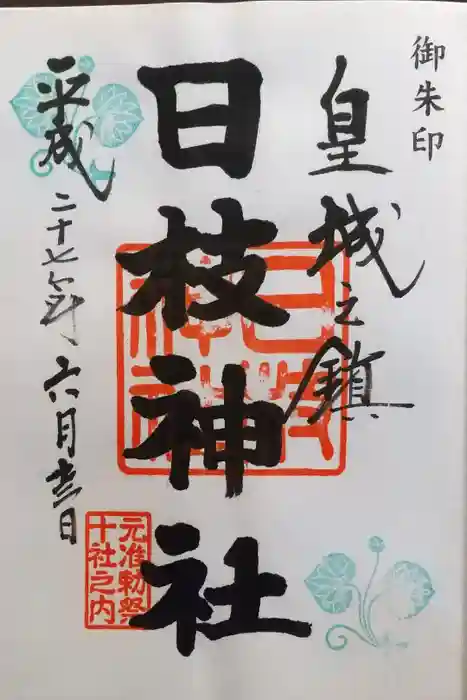 御朱印
皇城之鎮
日枝神社
日枝
神社
元准勅祭
十社之内
平成二十七年六月十三日